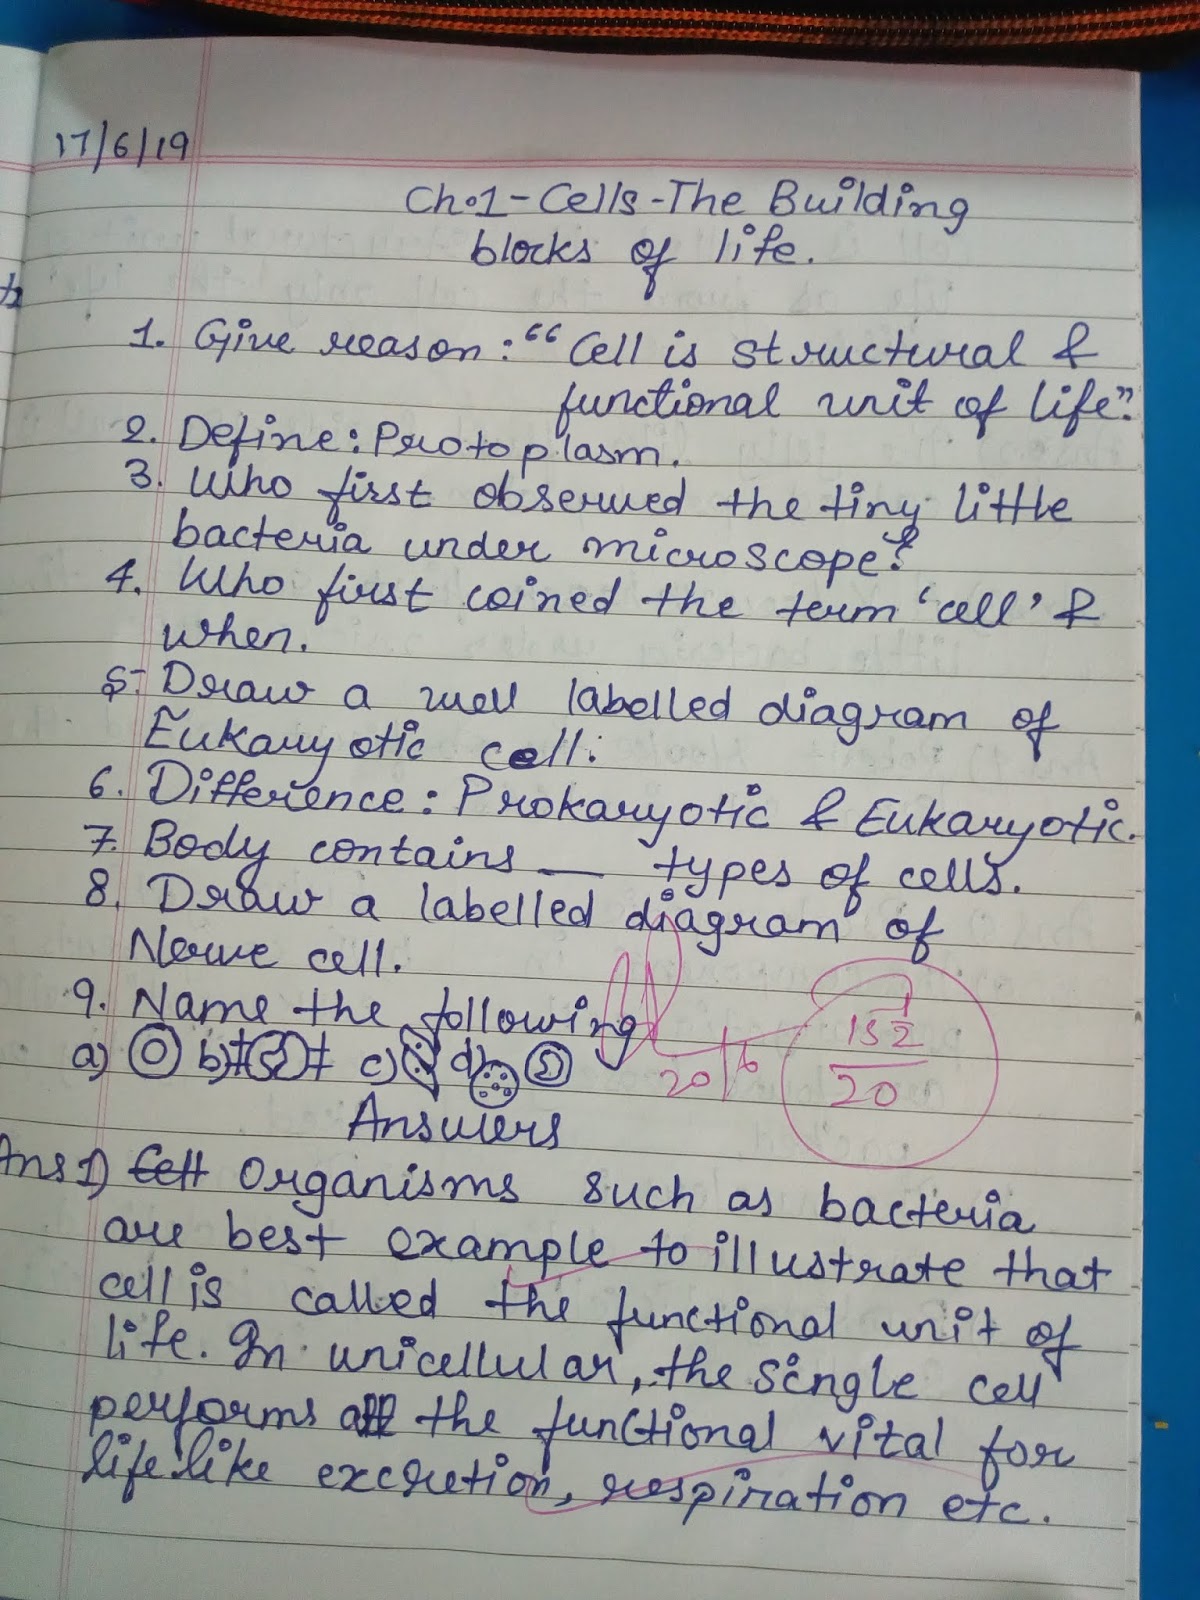 17/6/19
Ch.1-Cells-The Building
blocks of life.
1. Give reason: "Cell is structural &
functional unit of life".
2. Define: Protoplasm.
3. Who first observed the tiny little
bacteria under microscope?
4. Who first coined the term 'cell' &
when.
5. Draw a well labelled diagram of
Eukaryotic cell.
6. Difference: Prokaryotic & Eukaryotic.
7. Body contains __ types of cells.
8. Draw a labelled diagram of
Nerve cell.
9. Name the following
a) b) c) d)
20/6
15 1/2
20
Answers
Ans 1) Cell Organisms such as bacteria
are best example to illustrate that
cell is called the functional unit of
life. In unicellular, the single cell
performs all the functional vital for
life like excretion, respiration etc.